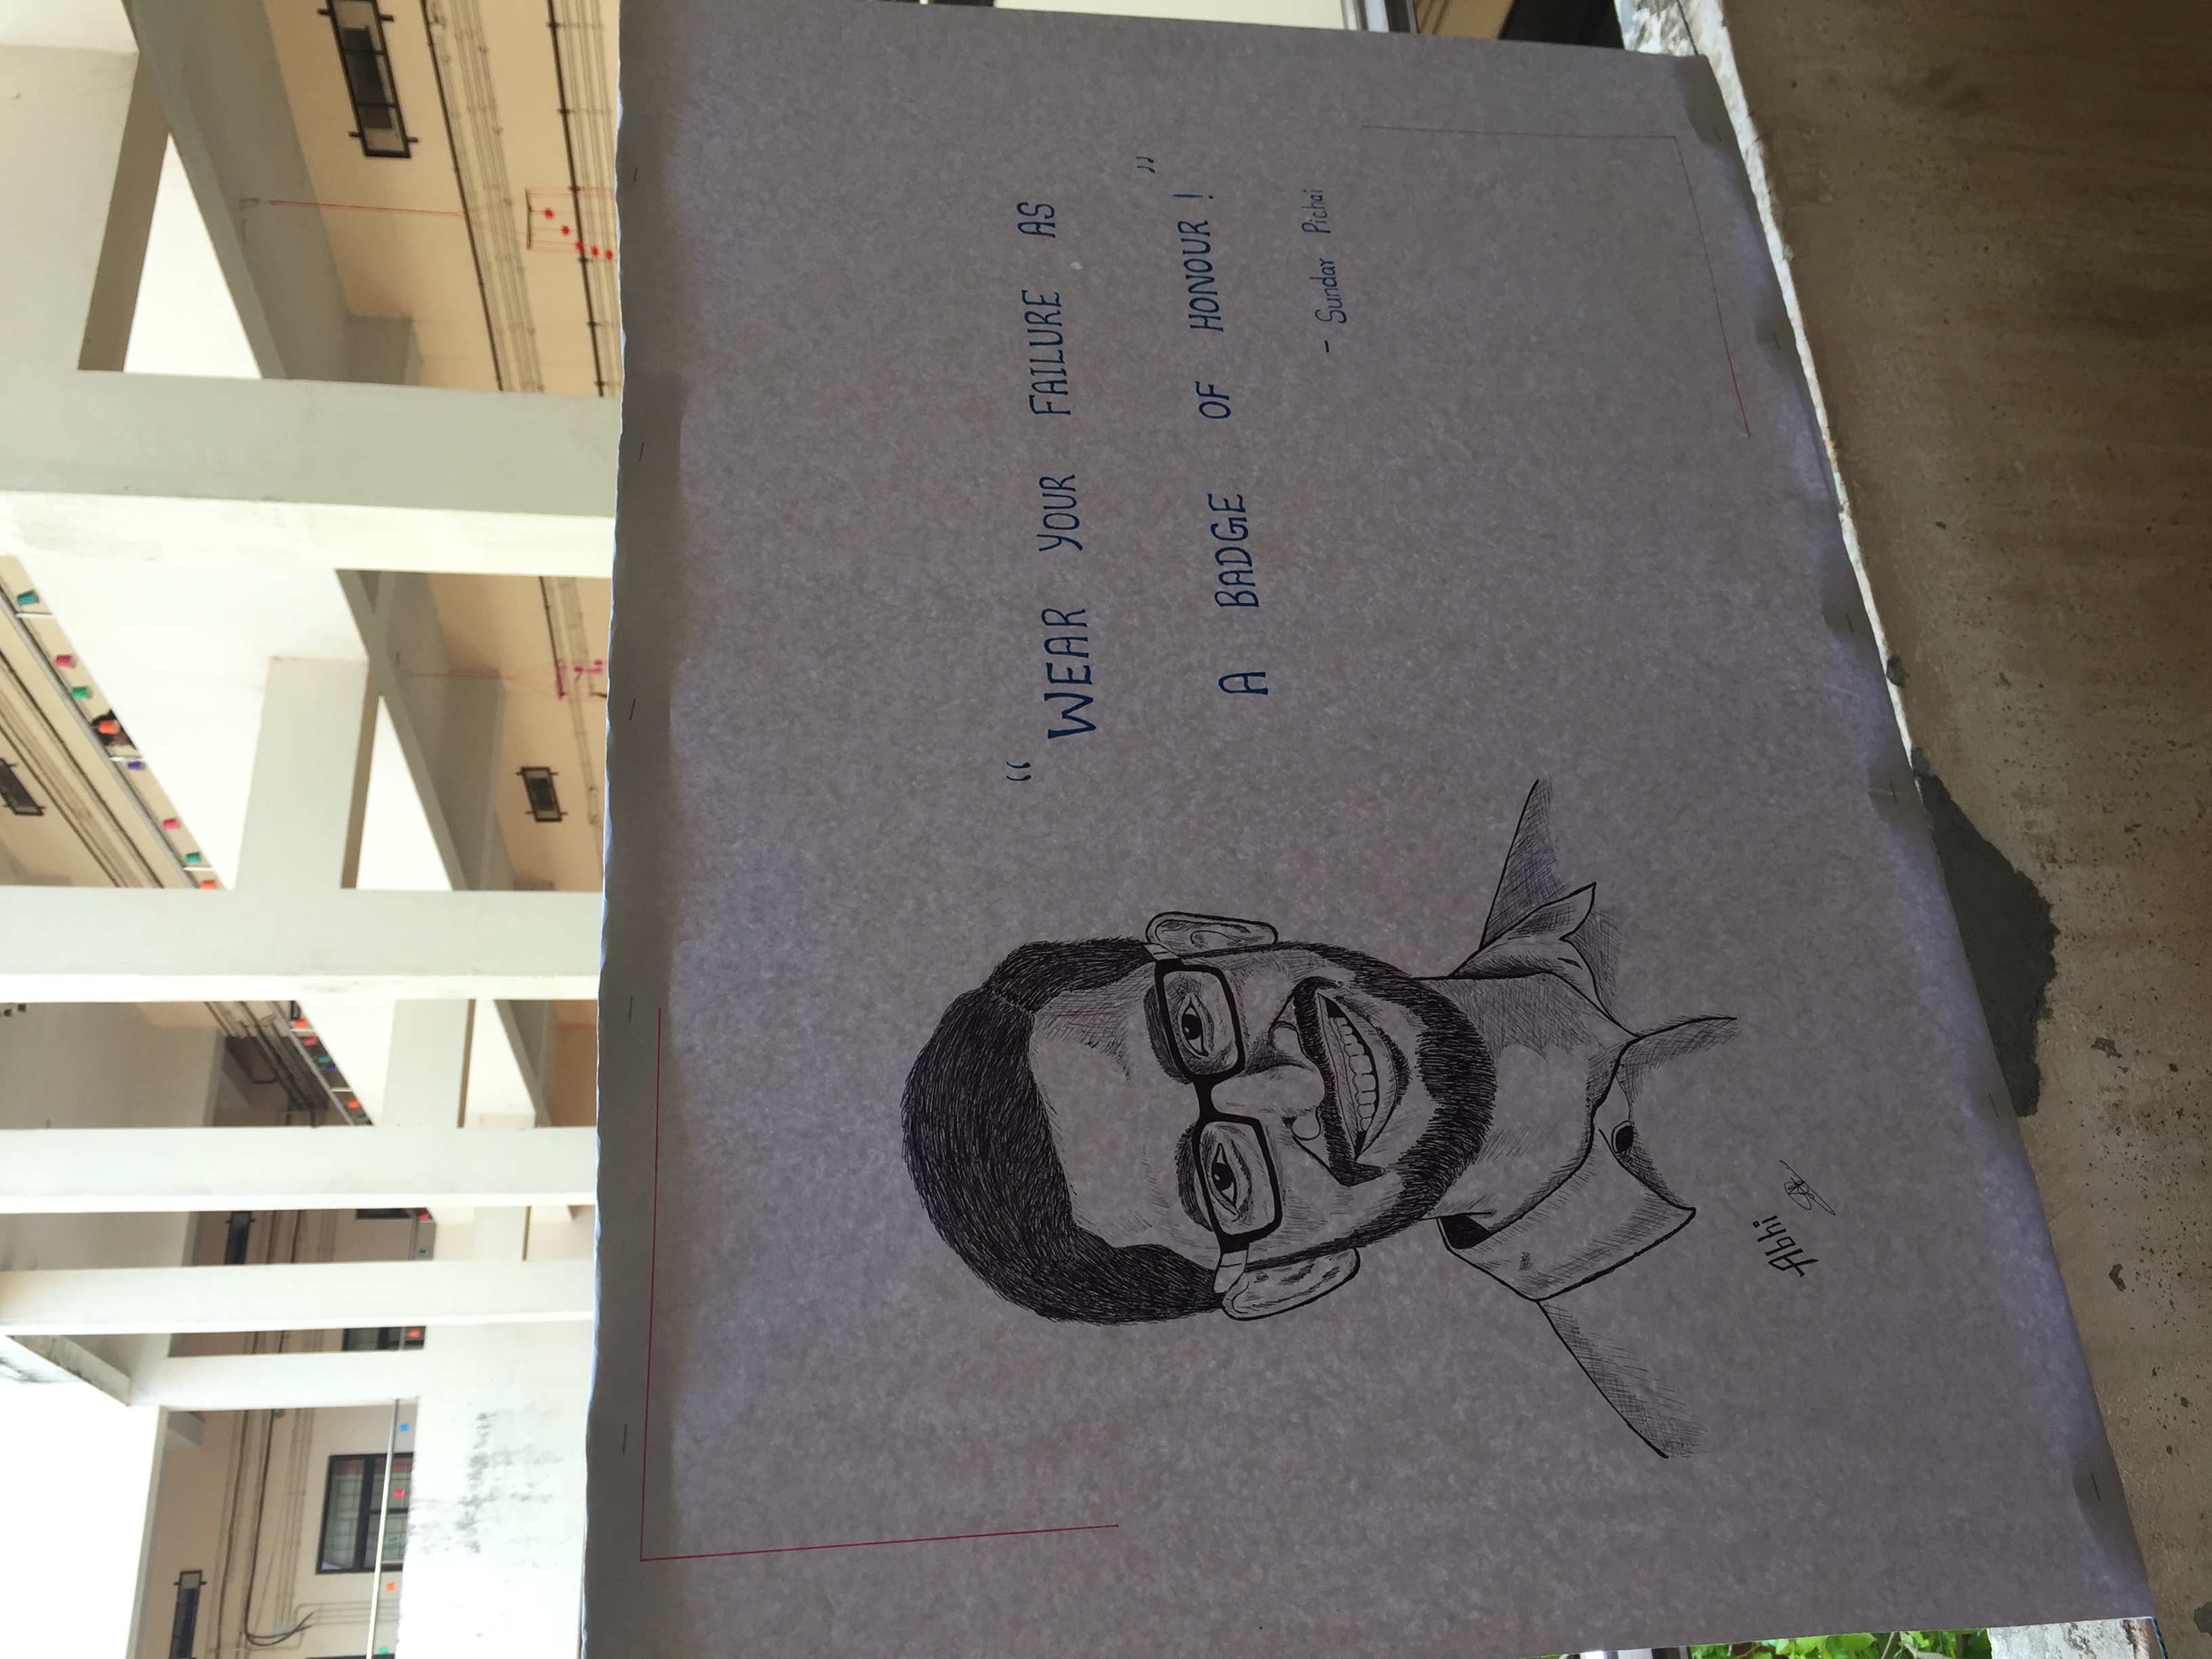 “ WEAR YOUR FAILURE AS
A BADGE OF HONOUR ! ”
- Sundar Pichai
Abhi